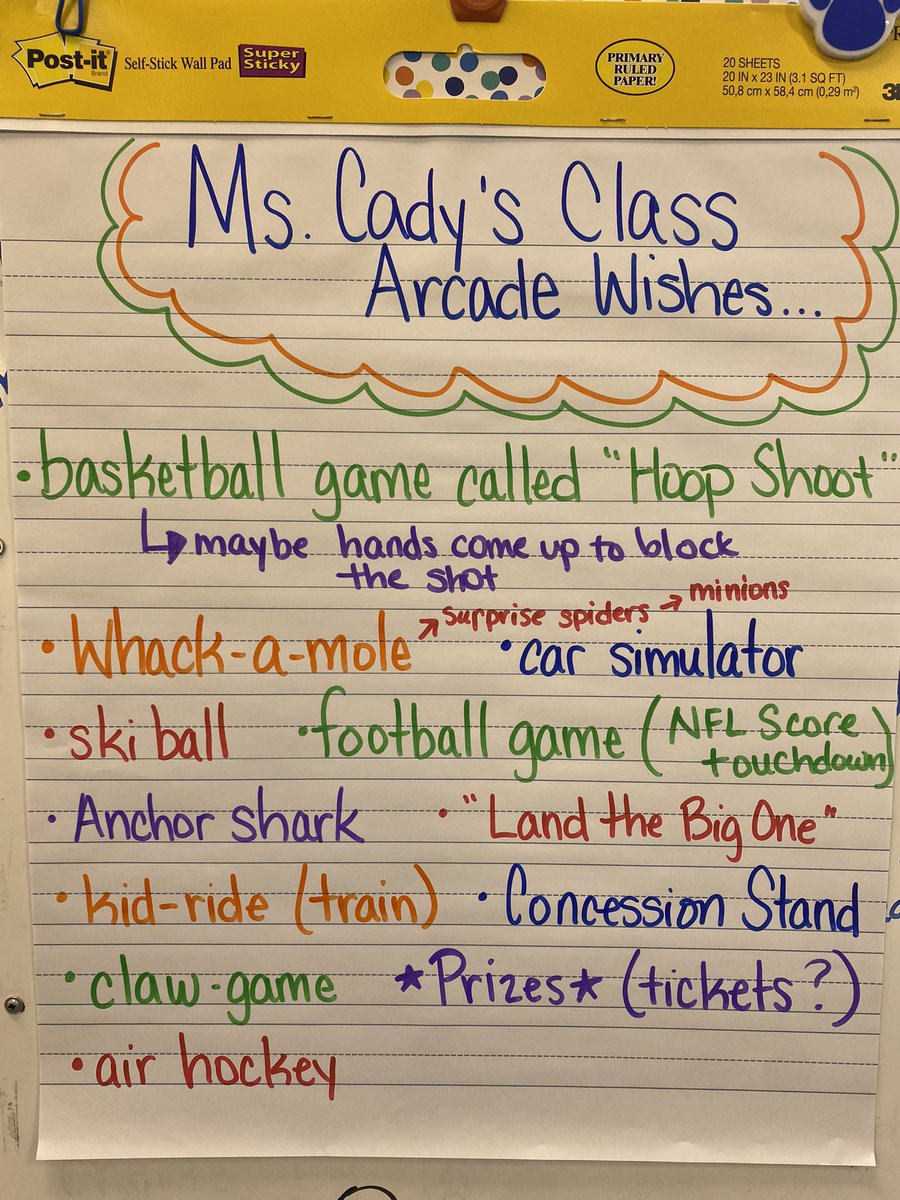 Post-it
Brand
Self-Stick Wall Pad
Super
Sticky
PRIMARY
RULED
PAPER!
20 SHEETS
20 IN x 23 IN (3.1 SQ FT)
50,8 cm x 58,4 cm (0,29 m²)
Ms. Cady's Class
Arcade Wishes...
• basketball game called "Hoop Shoot"
↳ maybe hands come up to block
the shot
• Whack-a-mole ↗ surprise spiders → minions
• car simulator
• ski ball
• football game (NFL Score
touchdown)
• Anchor shark
• "Land the Big One"
• kid-ride (train)
• Concession Stand
• claw-game
★Prizes★ (tickets?)
• air hockey